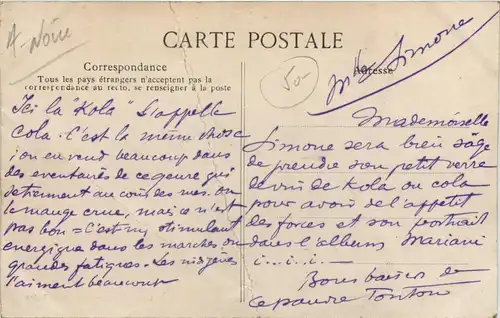 A-Noire
CARTE POSTALE
Correspondance
Tous les pays étrangers n'acceptent pas la
correspondance au recto, se renseigner à la poste
50-
Adresse
Mlle Simone
Ici la "Kola" s'appelle
Cola. C'est la même chose
; on en vend beaucoup dans
des éventaires de ce genre qui
au coin des rues. on
la mange crue, mais ce n'est
pas bon = C'est un stimulant
énergique dans les marches ou
grandes fatigues. Les nigères
l'aiment beaucoup
Mademoiselle
Simone sera bien sage
de prendre son petit verre
de vin de Kola ou cola
pour avoir de l'appétit
des forces et son portrait
dans l'album Mariani
i...i...i-
Bons baisers de
ce pauvre Tonton